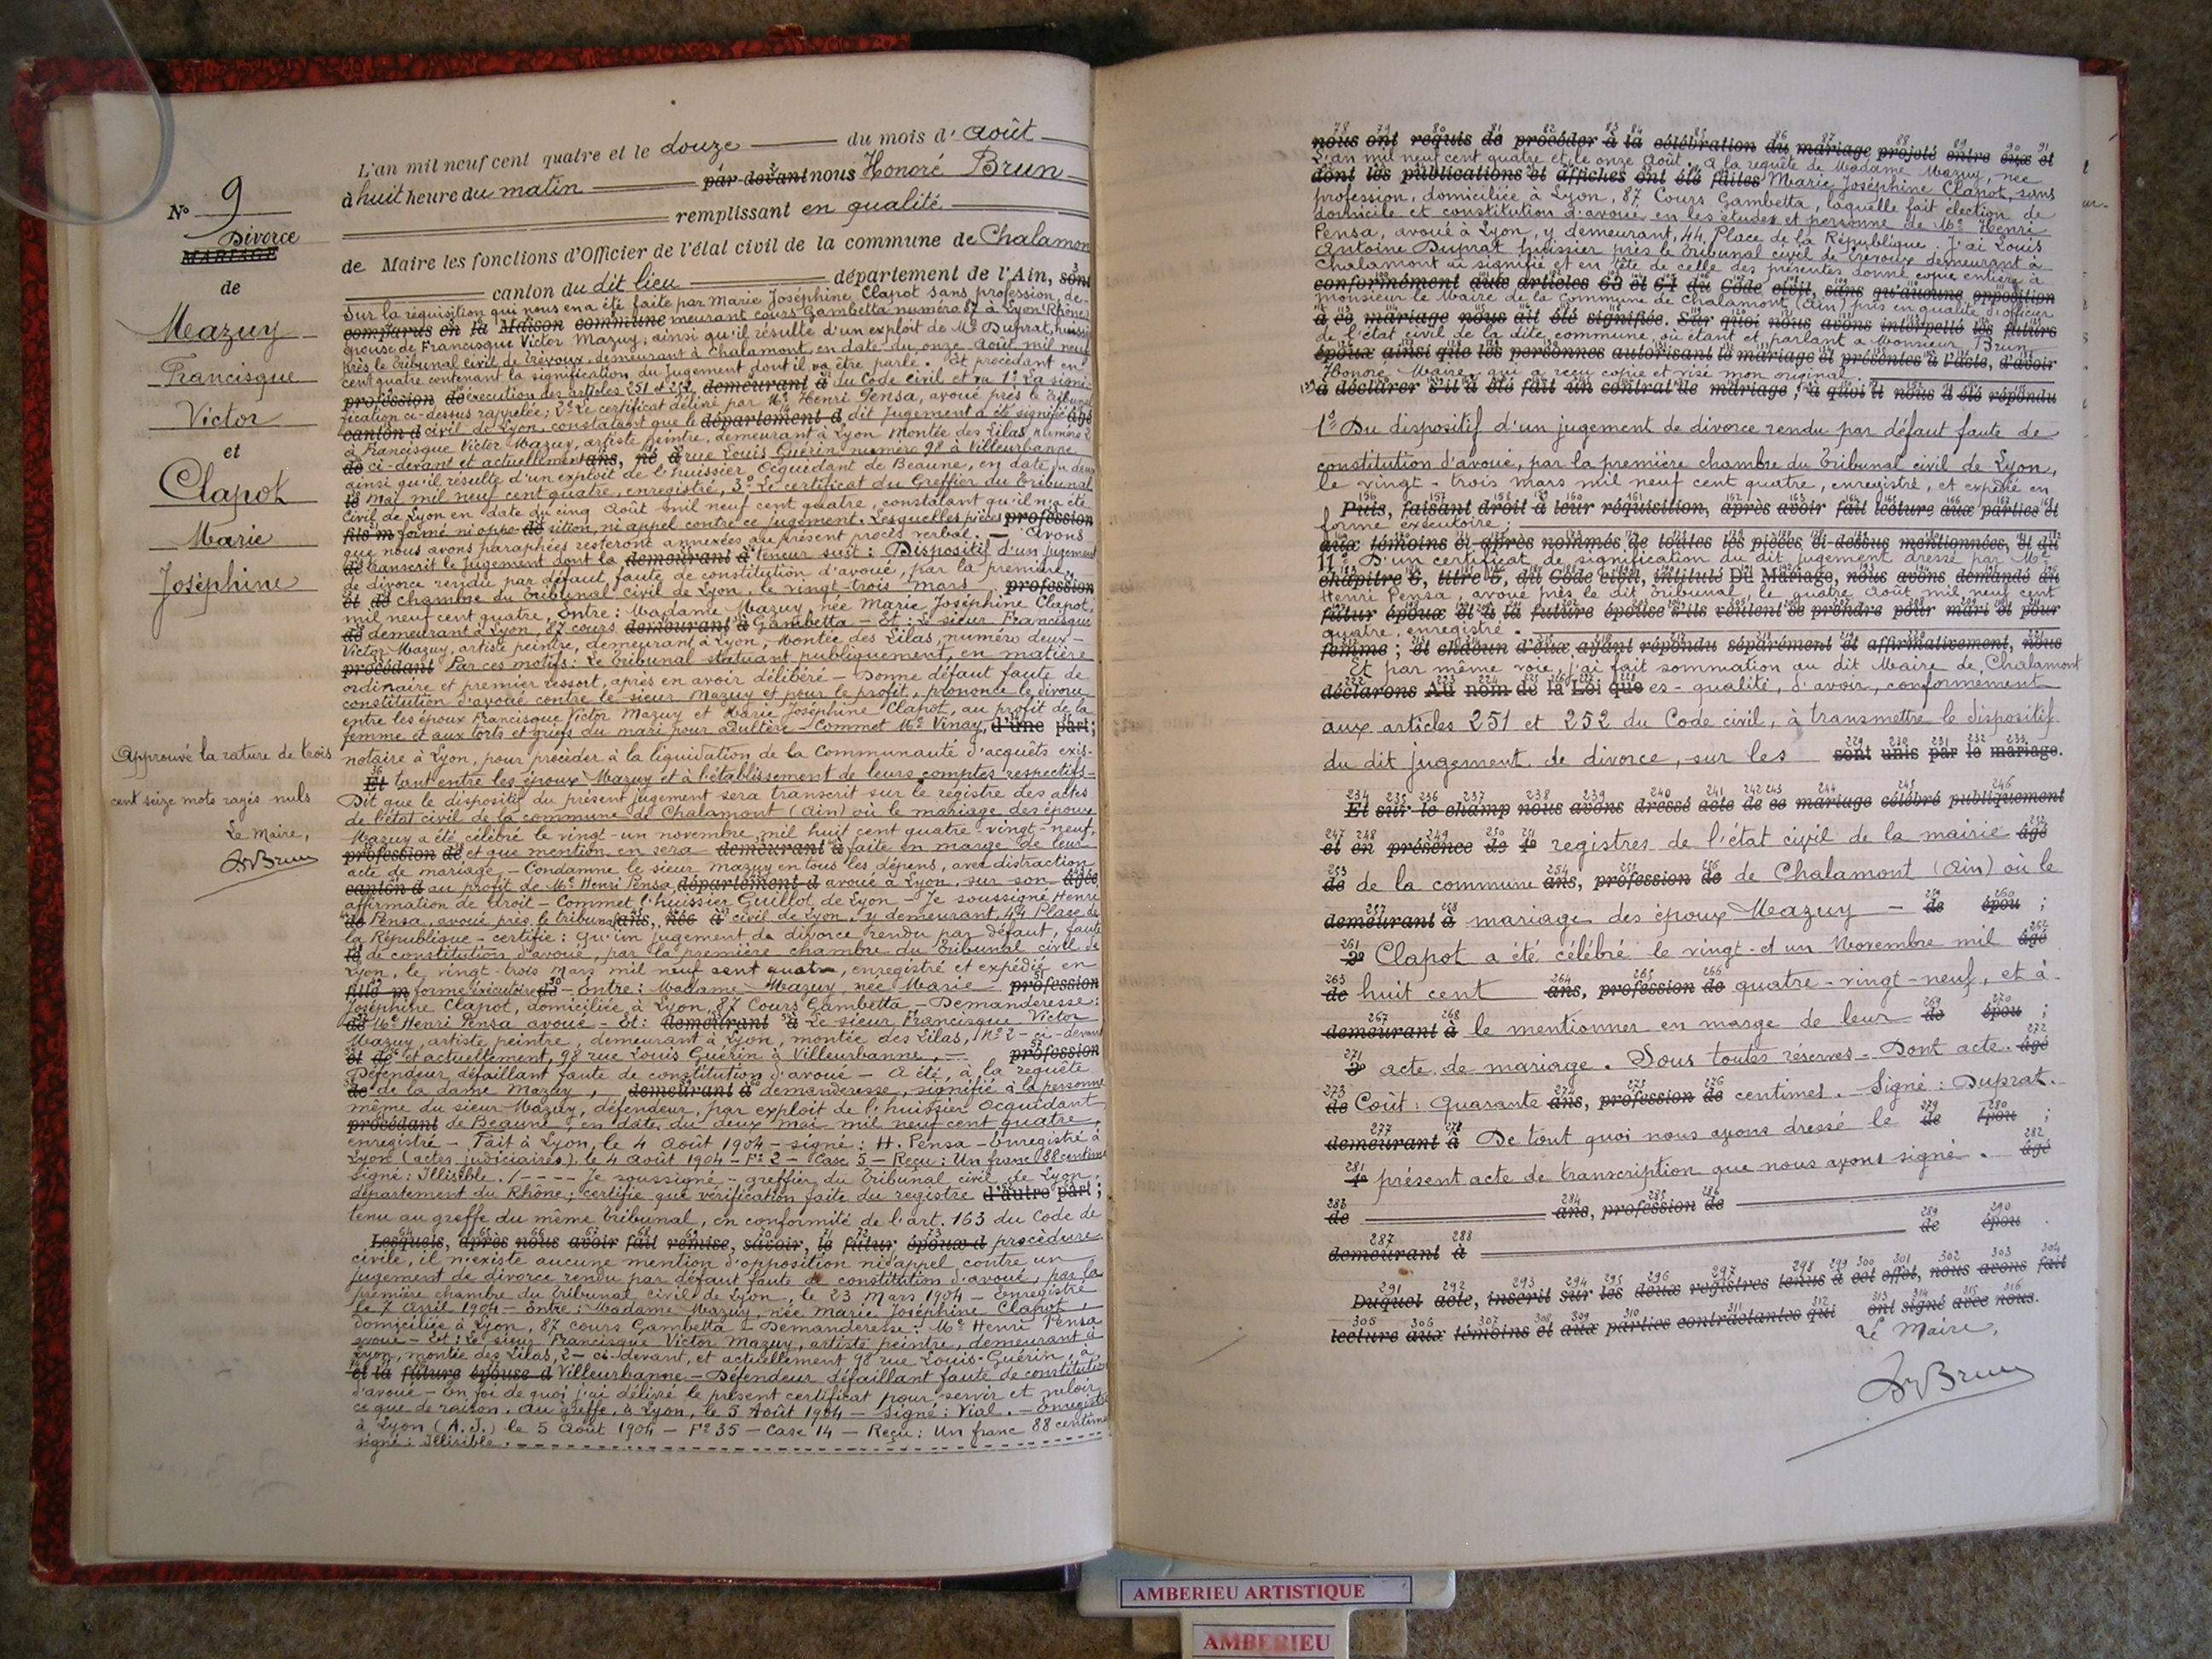 N° 9
Divorce
MARIAGE
de
Mazuy
Francisque
Victor
et
Clapot
Marie
Joséphine
Approuvé la rature de trois
cent seize mots rayés nuls
Le Maire,
HBrun
L'an mil neuf cent quatre et le douze du mois d'Août
à huit heure du matin par-devant nous Honoré Brun
remplissant en qualité
de Maire les fonctions d'Officier de l'état civil de la commune de Chalamon
canton du dit lieu département de l'Ain, sont
Sur la réquisition qui nous en a été faite par Marie Joséphine Clapot sans profession, de-
comparus en la Maison commune meurant cours Gambetta numéro 87 à Lyon (Rhône)
épouse de Francisque Victor Mazuy, ainsi qu'il résulte d'un exploit de Me Duprat, huissi
près le Tribunal civil de Trévoux, demeurant à Chalamont, en date du onze Août mil neuf
cent quatre contenant la signification du Jugement dont il va être parlé. Et procédant en
profession de exécution des articles 251 et 252 demeurant à du Code Civil et vu 1° La signi-
fication ci-dessus rappelée; 2° Le certificat délivré par Me Henri Pensa, avoué près le Tribunal
canton d civil de Lyon, constatant que le département d dit Jugement a été signifié âgé
à Francisque Victor Mazuy, artiste peintre, demeurant à Lyon Montée des Lilas numéro 2
de ci-devant et actuellement ans, né à rue Louis Guérin numéro 98 à Villeurbanne
ainsi qu'il résulte d'un exploit de l'huissier Ocquidant de Beaune, en date du deux
le mai mil neuf cent quatre, enregistré, 3° Le certificat du Greffier du Tribunal
Civil de Lyon en date du cinq Août mil neuf cent quatre constatant qu'il n'a été
fils m formé ni oppo de sition, ni appel contre ce jugement. Lesquelles pièces profession
que nous avons paraphées resteront annexées au présent procès verbal. — Avons
de transcrit le Jugement dont la demeurant à teneur suit: Dispositif d'un jugement
de divorce rendu par défaut, faute de constitution d'avoué, par la première
et de chambre du Tribunal civil de Lyon, le vingt-trois mars profession
mil neuf cent quatre, Entre: Madame Mazuy, née Marie Joséphine Clapot,
de demeurant à Lyon, 87 cours demeurant à Gambetta - Et: Le sieur Francisque
Victor Mazuy, artiste peintre, demeurant à Lyon, Montée des Lilas, numéro deux -
procédant Par ces motifs: Le Tribunal statuant publiquement, en matière
ordinaire et premier ressort, après en avoir délibéré - Donne défaut faute de
constitution d'avoué contre le sieur Mazuy et pour le profit, prononce le divorce
entre les époux Francisque Victor Mazuy et Marie Joséphine Clapot, au profit de la
femme et aux torts et griefs du mari pour adultère - Commet Me Vinay, d'une part;
notaire à Lyon, pour procéder à la liquidation de la Communauté d'acquêts exis-
Et tant entre les époux Mazuy et à l'établissement de leurs comptes respectifs -
Dit que le dispositif du présent jugement sera transcrit sur le registre des actes
de l'état civil de la commune de Chalamont (Ain) où le mariage des époux
Mazuy a été célébré le vingt-un novembre mil huit cent quatre-vingt-neuf,
profession de et que mention en sera demeurant à faite en marge de leur
acte de mariage - Condamne le sieur Mazuy en tous les dépens, avec distraction
canton d au profit de Me Henri Pensa département d avoué à Lyon, sur son âgée
affirmation de droit - Commet l'huissier Guillot de Lyon - Je soussigné Henri
de Pensa, avoué près le tribunal ans, née à civil de Lyon, y demeurant, 44 Place de
la République - certifie: qu'un jugement de divorce rendu par défaut, faute
le de constitution d'avoué, par la première chambre du Tribunal civil de
Lyon, le vingt-trois mars mil neuf cent quatre, enregistré et expédié en
fille m forme exécutoire de - Entre: Madame Mazuy, née Marie profession
Joséphine Clapot, domiciliée à Lyon, 87 Cours Gambetta - Demanderesse:
de Me Henri Pensa avoué - Et: demeurant à Le sieur Francisque Victor
Mazuy, artiste peintre, demeurant à Lyon, montée des Lilas, N° 2 - ci-devant
et de et actuellement, 98 rue Louis Guérin à Villeurbanne, - profession
Défendeur défaillant faute de constitution d'avoué - A été, à la requête
de de la dame Mazuy, demeurant à demanderesse, signifié à la personne
même du sieur Mazuy, défendeur, par exploit de l'huissier Ocquidant
procédant de Beaune, en date du deux mai mil neuf cent quatre,
enregistré - Fait à Lyon, le 4 Août 1904 - signé: H. Pensa - Enregistré à
Lyon (actes judiciaires) le 4 Août 1904 - F° 2 - Case 5 - Reçu: Un franc 88 centimes
Signé: Illisible. /---- Je soussigné - greffier du Tribunal civil de Lyon,
département du Rhône; certifie que vérification faite du registre d'autre part;
tenu au greffe du même Tribunal, en conformité de l'art. 163 du Code de
Lesquels, après nous avoir fait remise, savoir, le futur époux d procédure
civile, il n'existe aucune mention d'opposition ni d'appel contre un
jugement de divorce rendu par défaut faute de constitution d'avoué, par la
première chambre du Tribunal civil de Lyon, le 23 Mars 1904 - Enregistré
le 7 Avril 1904 - Entre: Madame Mazuy, née Marie Joséphine Clapot,
domiciliée à Lyon, 87 cours Gambetta - Demanderesse: Me Henri Pensa
avoué - Et: Le sieur Francisque Victor Mazuy, artiste peintre, demeurant à
Lyon, montée des Lilas, 2 - ci-devant, et actuellement 98 rue Louis-Guérin, à
et la future épouse d Villeurbanne - Défendeur défaillant faute de constitution
d'avoué - En foi de quoi j'ai délivré le présent certificat pour servir et valoir
ce que de raison. Au greffe, à Lyon, le 5 Août 1904 - Signé: Vial. - Enregistré
à Lyon (A.J.) le 5 Août 1904 - F° 35 - Case 14 - Reçu: Un franc 88 centimes
signé: Illisible.
nous ont requis de procéder à la célébration du mariage projeté entre eux et
L'an mil neuf cent quatre et le onze Août. A la requête de Madame Mazuy, née
dont les publications et affiches ont été faites Marie Joséphine Clapot, sans
profession, domiciliée à Lyon, 87 Cours Gambetta, laquelle fait élection de
domicile et constitution d'avoué en les études et personne de Me Henri
Pensa, avoué à Lyon, y demeurant, 44 Place de la République. J'ai Louis
Antoine Duprat huissier près le Tribunal civil de Trévoux demeurant à
Chalamont ai signifié et en tête de celle des présentes donné copie entière à
conformément aux articles 63 et 64 du Code civil, sans qu'aucune opposition
monsieur le Maire de la Commune de Chalamont (Ain) pris en qualité d'officier
à ce mariage nous ait été signifiée. Sur quoi nous avons interpellé les futurs
de l'état civil de la dite commune, où étant et parlant à Monsieur Brun
époux ainsi que les personnes autorisant le mariage et présentes à l'acte, d'avoir
Honoré Maire, qui a reçu copie et visé mon original
à déclarer s'il a été fait un contrat de mariage; à quoi il nous a été répondu
1° Du dispositif d'un jugement de divorce rendu par défaut faute de
constitution d'avoué, par la première chambre du Tribunal civil de Lyon,
le vingt-trois mars mil neuf cent quatre, enregistré, et expédié en
Puis, faisant droit à leur réquisition, après avoir fait lecture aux parties et
forme exécutoire;
aux témoins ci-après nommés de toutes les pièces ci-dessus mentionnées, et du
D'un certificat de signification du dit jugement dressé par Me
chapitre 6, titre 5, du Code civil, intitulé Du Mariage, nous avons demandé au
Henri Pensa, avoué près le dit Tribunal, le quatre Août mil neuf cent
futur époux et à la future épouse s'ils veulent se prendre pour mari et pour
quatre, enregistré.
femme; et chacun d'eux ayant répondu séparément et affirmativement, nous
Et par même voie, j'ai fait sommation au dit Maire de Chalamont
déclarons Au nom de la Loi que es-qualité, d'avoir, conformément
aux articles 251 et 252 du Code civil, à transmettre le dispositif
du dit jugement de divorce, sur les sont unis par le mariage.
Et sur-le-champ nous avons dressé acte de ce mariage célébré publiquement
et en présence de 1° registres de l'état civil de la mairie âgé
de de la commune ans, profession de de Chalamont (Ain) où le
demeurant à mariage des époux Mazuy - de épou ;
2° Clapot a été célébré le vingt-et un Novembre mil âgé
de huit cent ans, profession de quatre-vingt-neuf, et à
demeurant à le mentionner en marge de leur de épou ;
3° acte de mariage. Sous toutes réserves - Dont acte. âgé
de Coût: Quarante ans, profession de centimes. Signé: Duprat.
demeurant à De tout quoi nous avons dressé le de épou ;
4° présent acte de transcription que nous avons signé. âgé
de ans, profession de
demeurant à de épou .
Duquel acte, inscrit sur les deux registres tenus à cet effet, nous avons fait
lecture aux témoins et aux parties contractantes qui ont signé avec nous.
Le Maire,
HBrun
AMBERIEU ARTISTIQUE
AMBERIEU